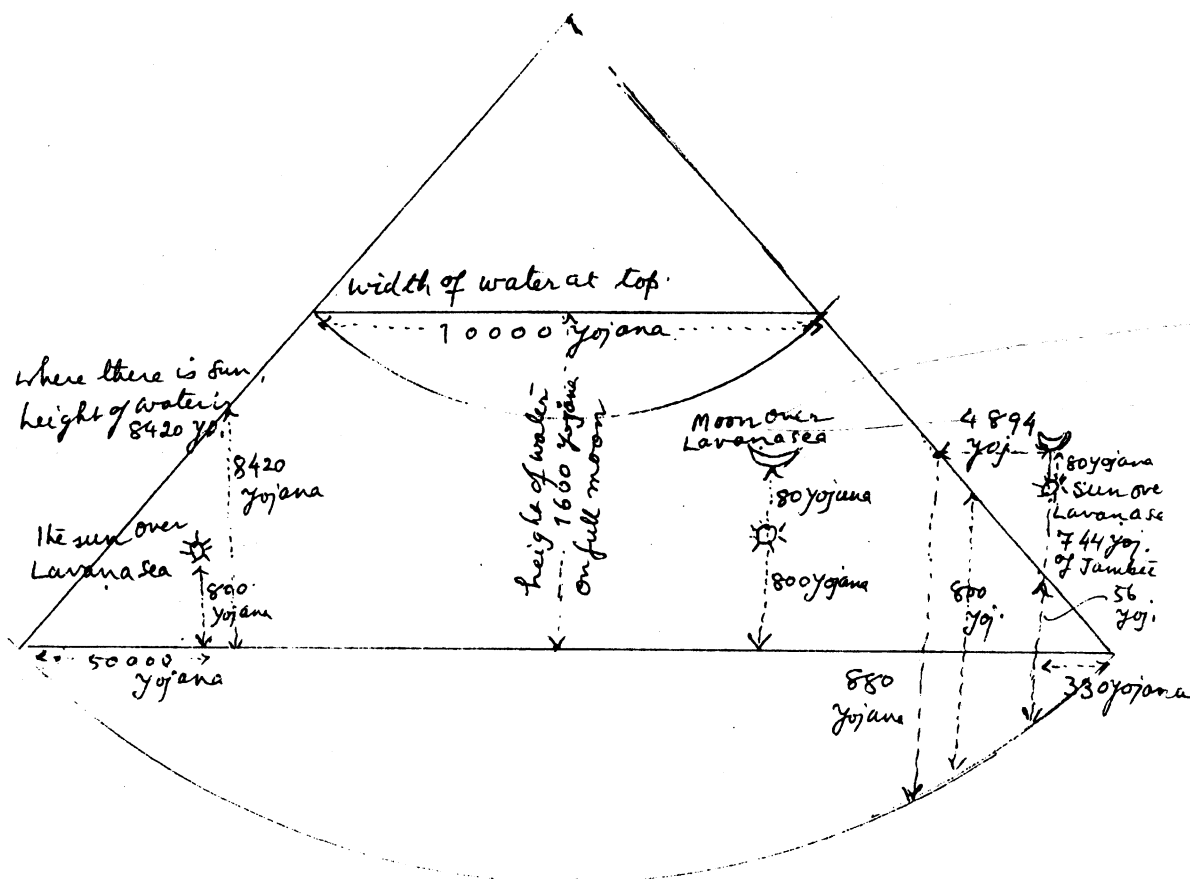 width of water at top.
10000 yojana
where there is sun,
height of water is
8420 yo.
8420
yojana
The sun over
Lavanasea
800
yojana
50000
yojana
height of water
1600 yojana
on full moon
Moon over
Lavanasea
80 yojana
800 yojana
4894
yoj.
80 yojana
Sun ove
Lavanase
744 yoj.
of Jambu
56
yoj.
800
yoj.
880
yojana
330 yojana